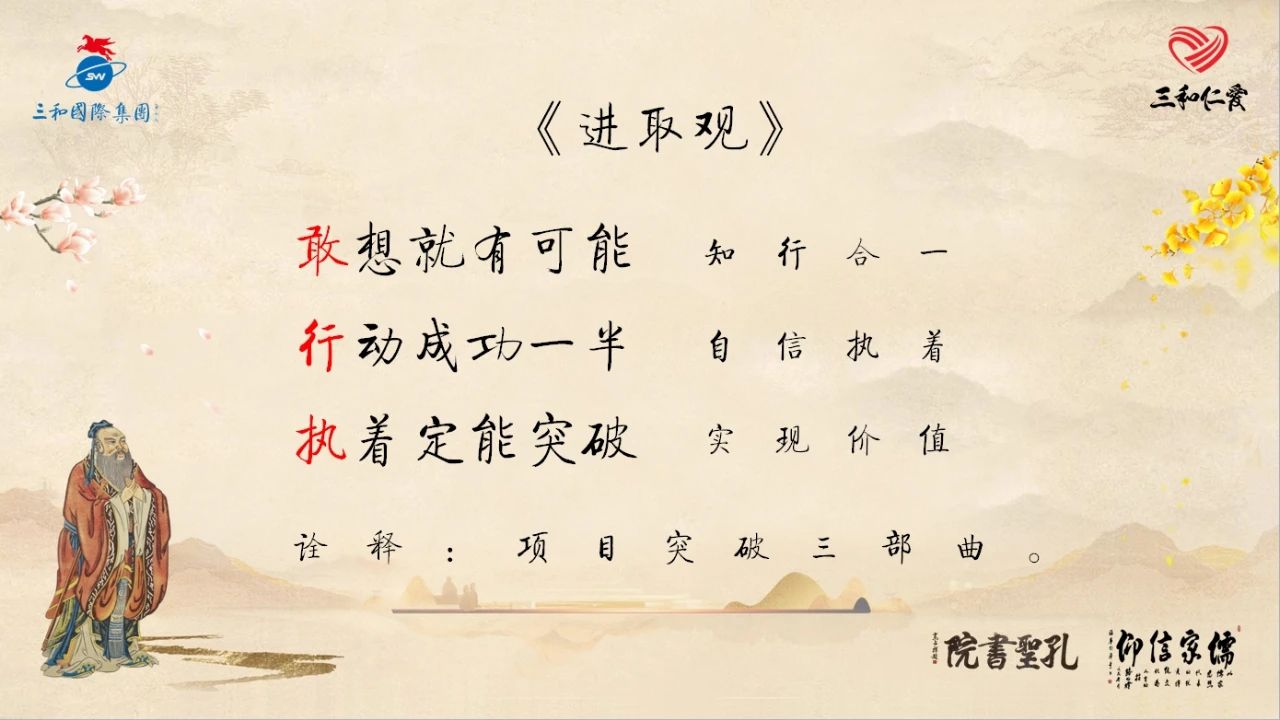 三和國際集團
三和仁爱
《进取观》
敢想就有可能 知行合一
行动成功一半 自信执着
执着定能突破 实现价值
诠释：项目突破三部曲。
院書聖孔
仰信家儒